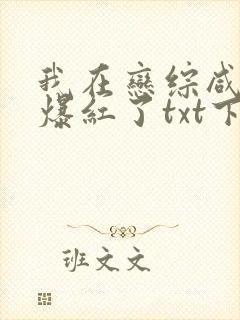 我在戀综咸
爆紅了txt下
班文文